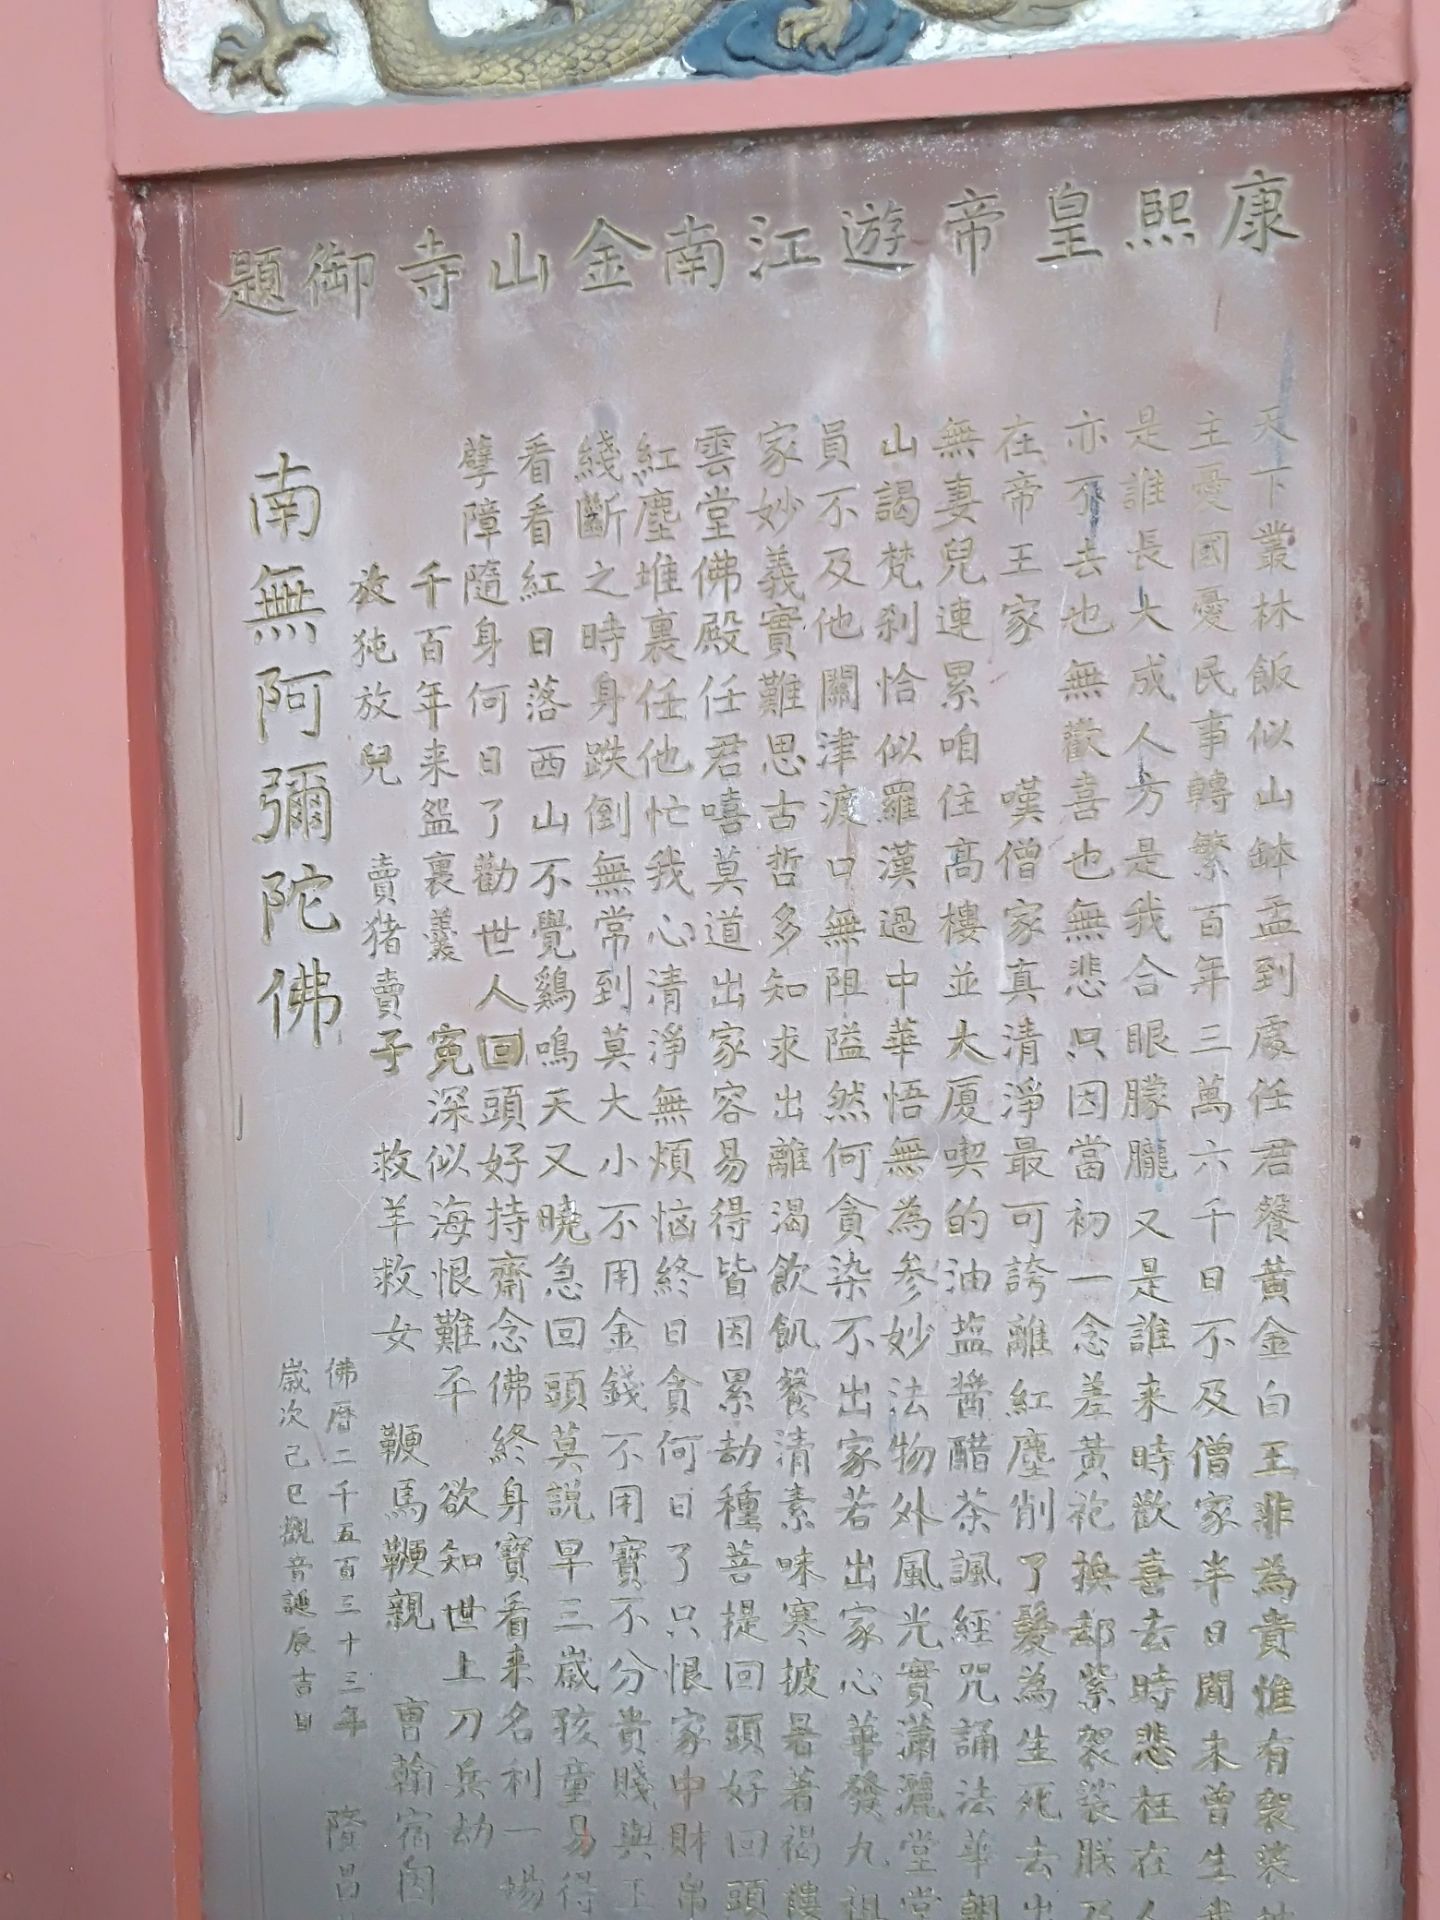 康熙皇帝遊江南金山寺御題
天下叢林飯似山缽盂到處任君餐黃金白玉非為貴惟有袈裟
主憂國憂民事轉繁百年三萬六千日不及僧家半日閒未曾生我
是誰長大成人方是我合眼朦朧又是誰来時歡喜去時悲枉在人
亦不去也無歡喜也無悲只因當初一念差黃袍換却紫袈裟朕乃
在帝王家 嘆僧家真清淨最可誇離紅塵削了髮為生死去出
無妻兒連累咱住高樓並大廈喫的油盐醬醋茶諷經咒誦法華朝
山謁梵刹恰似羅漢過中華悟無為參妙法物外風光實瀟灑堂堂
員不及他關津渡口無阻隘然何貪染不出家若出家心華發九祖
家妙義實難思古哲多知求出離渴飲飢餐清素味寒披暑著褐褸
雲堂佛殿任君嘻莫道出家容易得皆因累劫種菩提回頭好回頭
紅塵堆裏任他忙我心清淨無煩惱終日貪何日了只恨家中財帛
綫斷之時身跌倒無常到莫大小不用金錢不用寶不分貴賤與王
看看紅日落西山不覺鷄鳴天又曉急回頭莫説早三歲孩童易得
孽障隨身何日了勸世人回頭好持齋念佛終身寶看来名利一場
千百年来盌裏羹 寃深似海恨難平 欲知世上刀兵劫
放㹠放兒 賣猪賣子 救羊救女 鞭馬鞭親 曹翰宿因
佛曆二千五百三十三年 隆昌
歲次己巳觀音誕辰吉日
南無阿彌陀佛